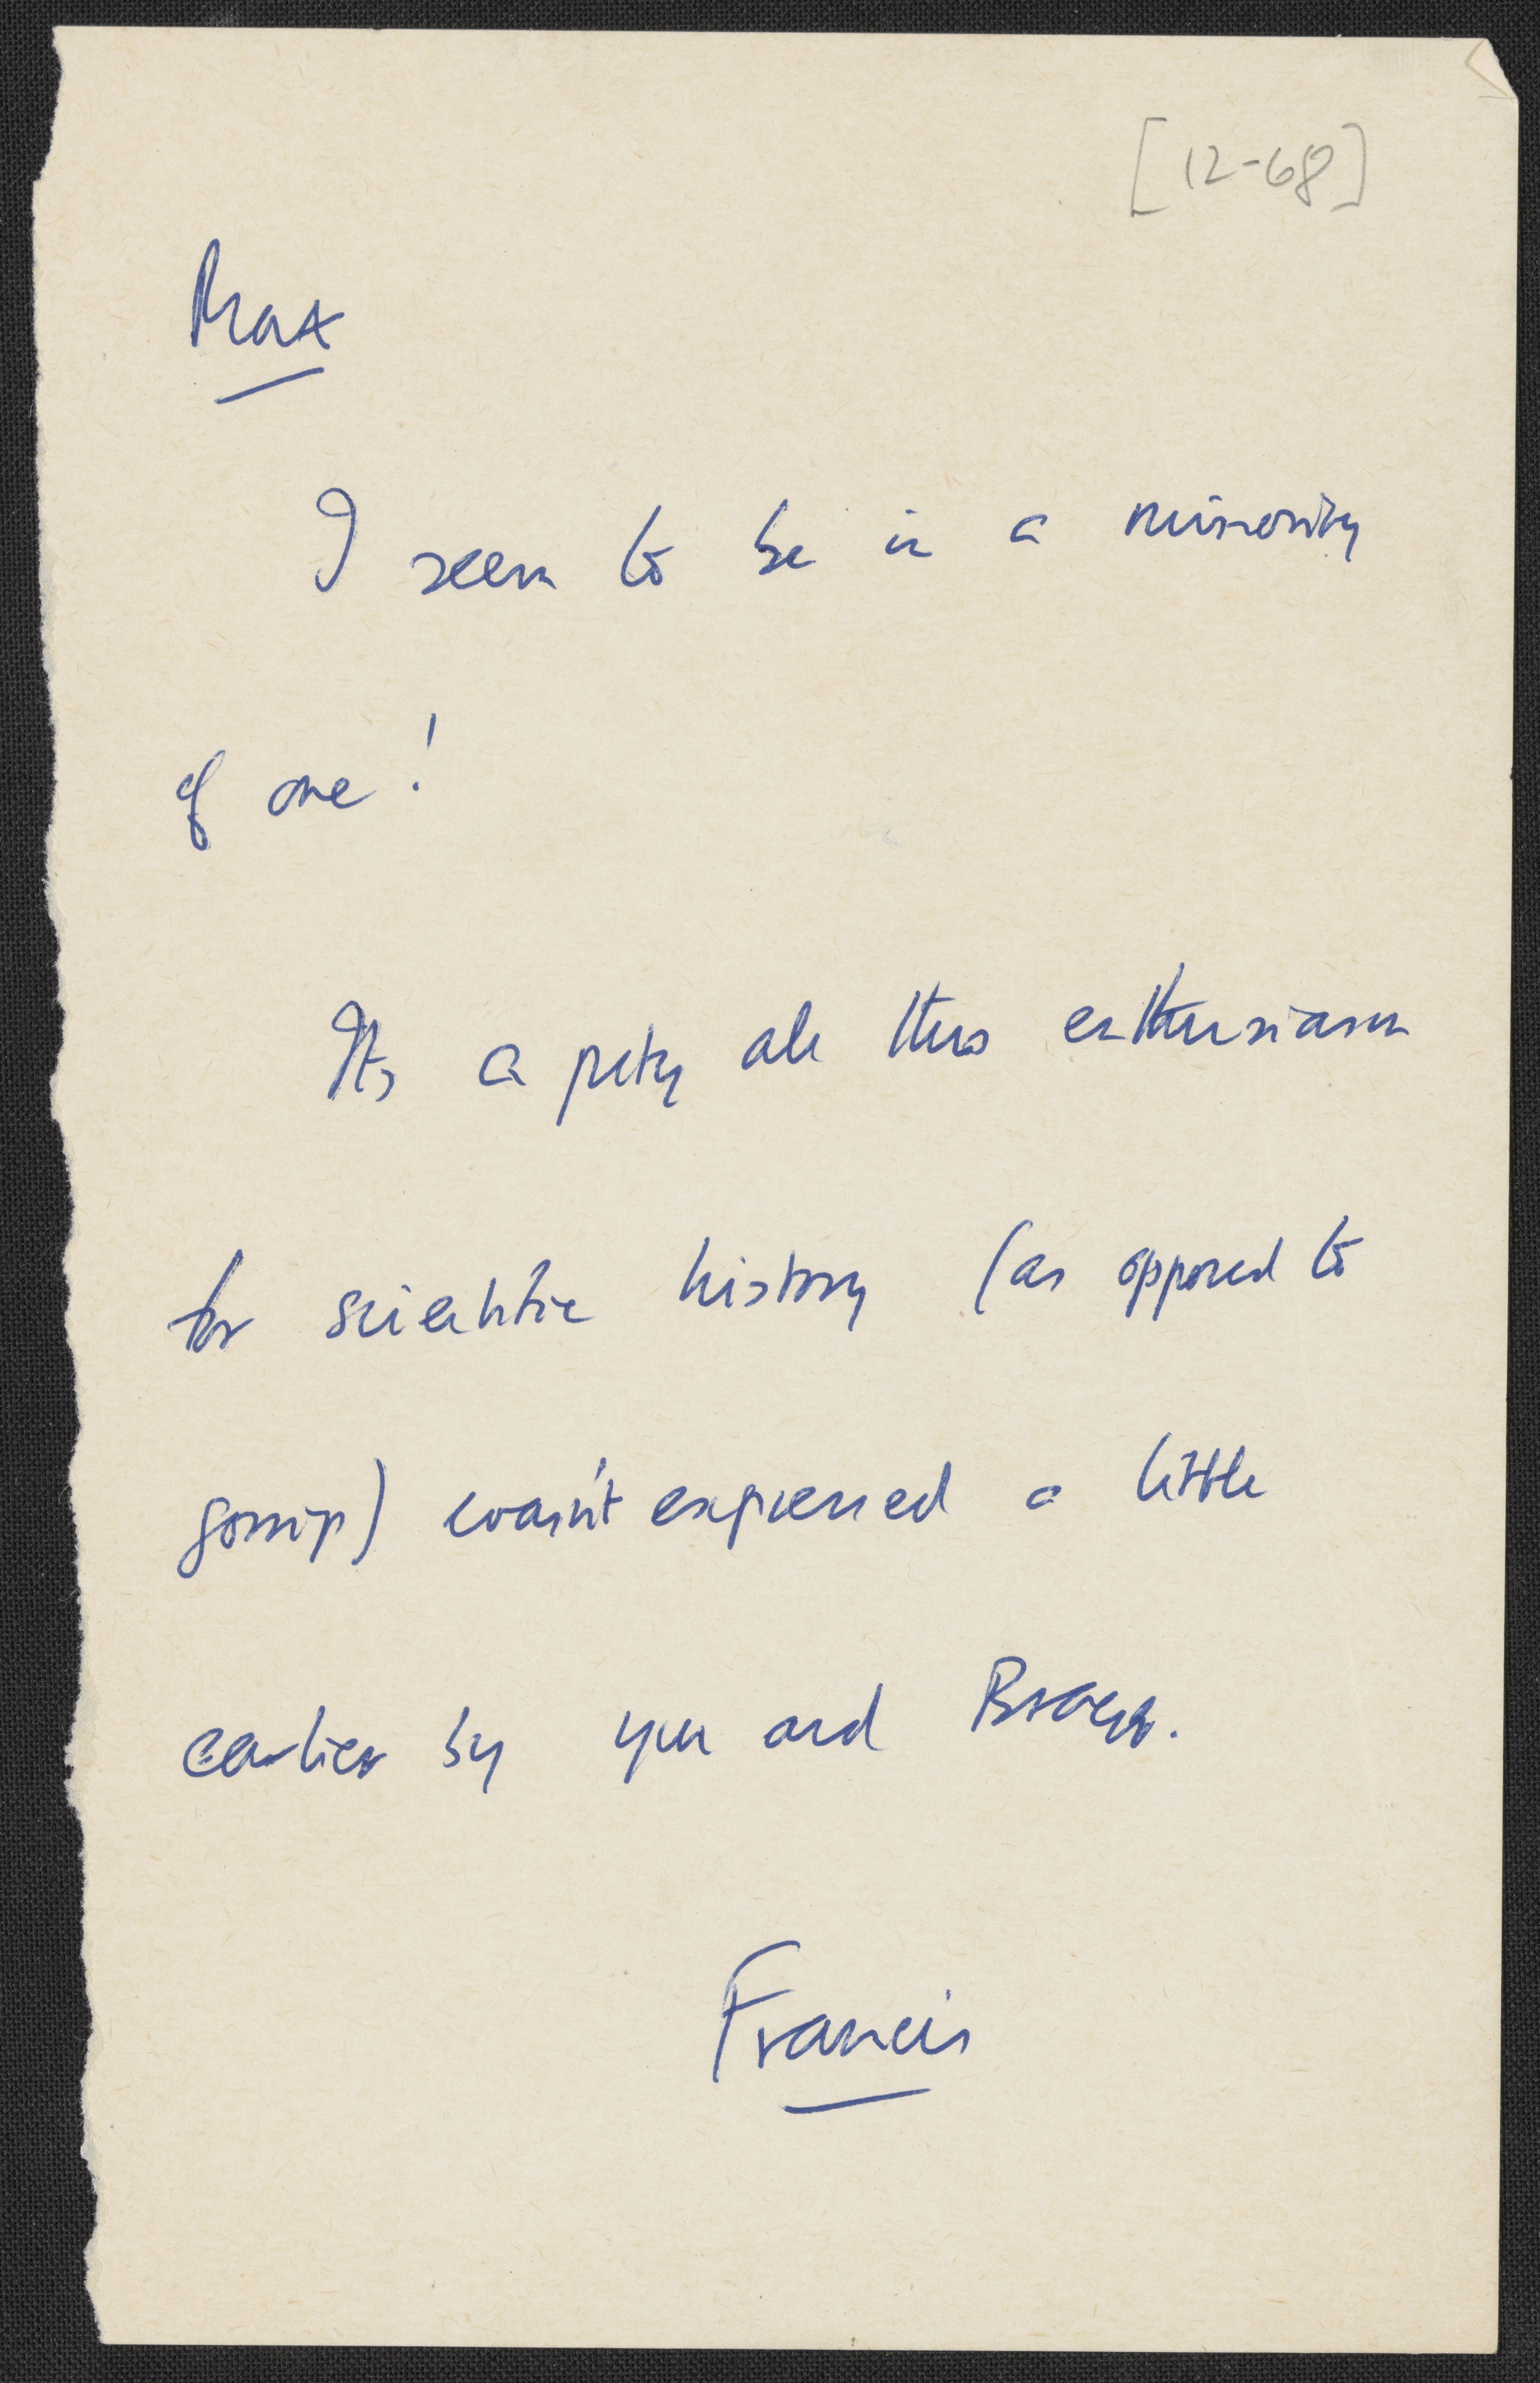 [12-68]
Max
I seem to be in a minority
of one!
Its a pity all this enthusiasm
for scientific history (as opposed to
gossip) wasn't expressed a little
earlier by you and Bragg.
Francis